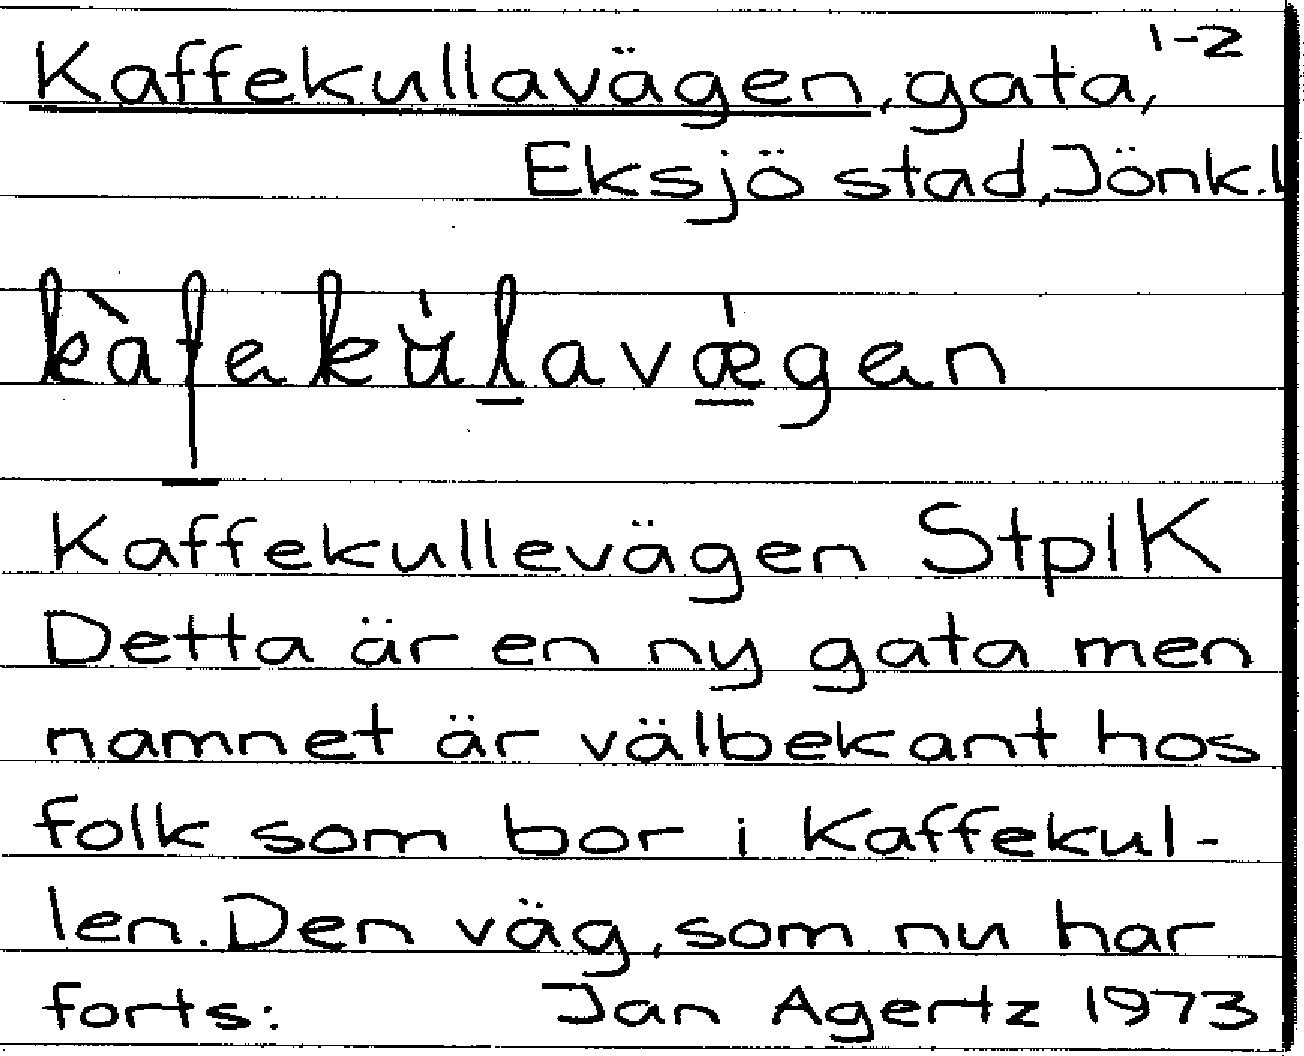 Kaffekullavägen, gata, 1-2
Eksjö stad, Jönk.l
kàfekùlavǽgen
Kaffekullevägen StplK
Detta är en ny gata men
namnet är välbekant hos
folk som bor i Kaffekul-
len. Den väg, som nu har
forts: Jan Agertz 1973